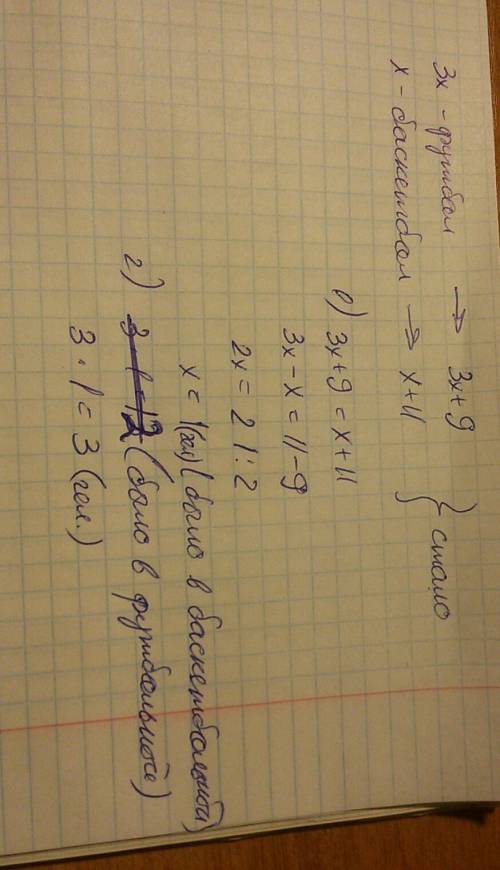 3x - футбол → 3x+9
x - баскетбол → x+11 } стало
1) 3x+9 = x+11
3x-x = 11-9
2x = 2 | :2
x = 1(чел) (было в баскетбольной)
2) 3·1=12 (было в футбольной)
3·1 = 3 (чел.)